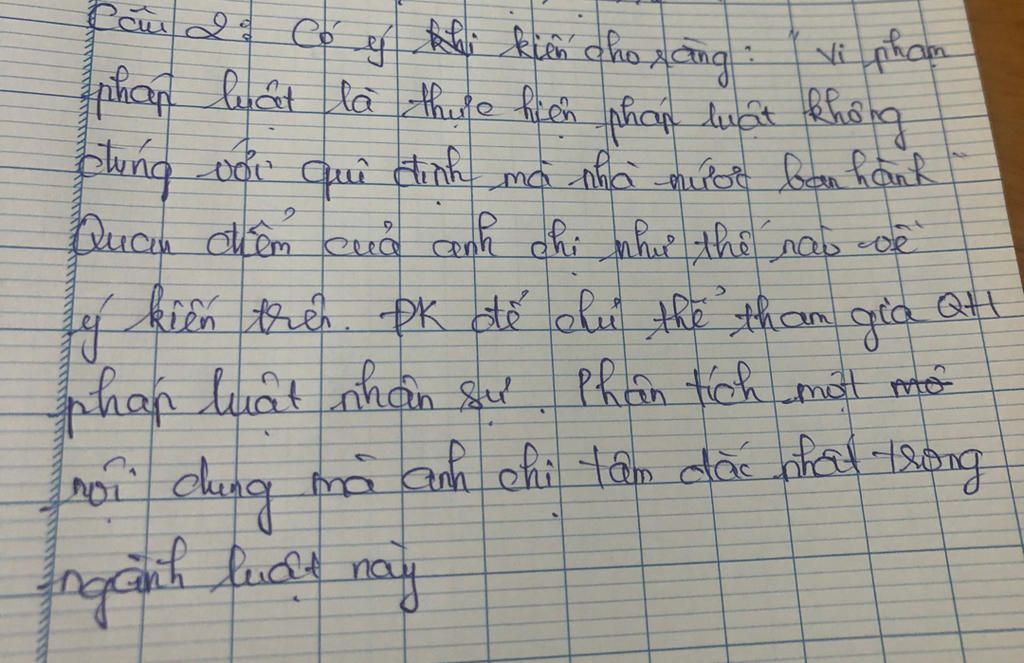 Câu 2: Có ý khi kiến cho rằng: "Vi phạm
pháp luật là thực hiện pháp luật không
đúng với qui định mà nhà nước ban hành"
Quan điểm của anh chị như thế nào về
ý kiến trên. ĐK để chủ thể tham gia QH
pháp luật nhân sự. Phân tích một mô
nội dung mà anh chị tâm đắc nhất trong
ngành luật này